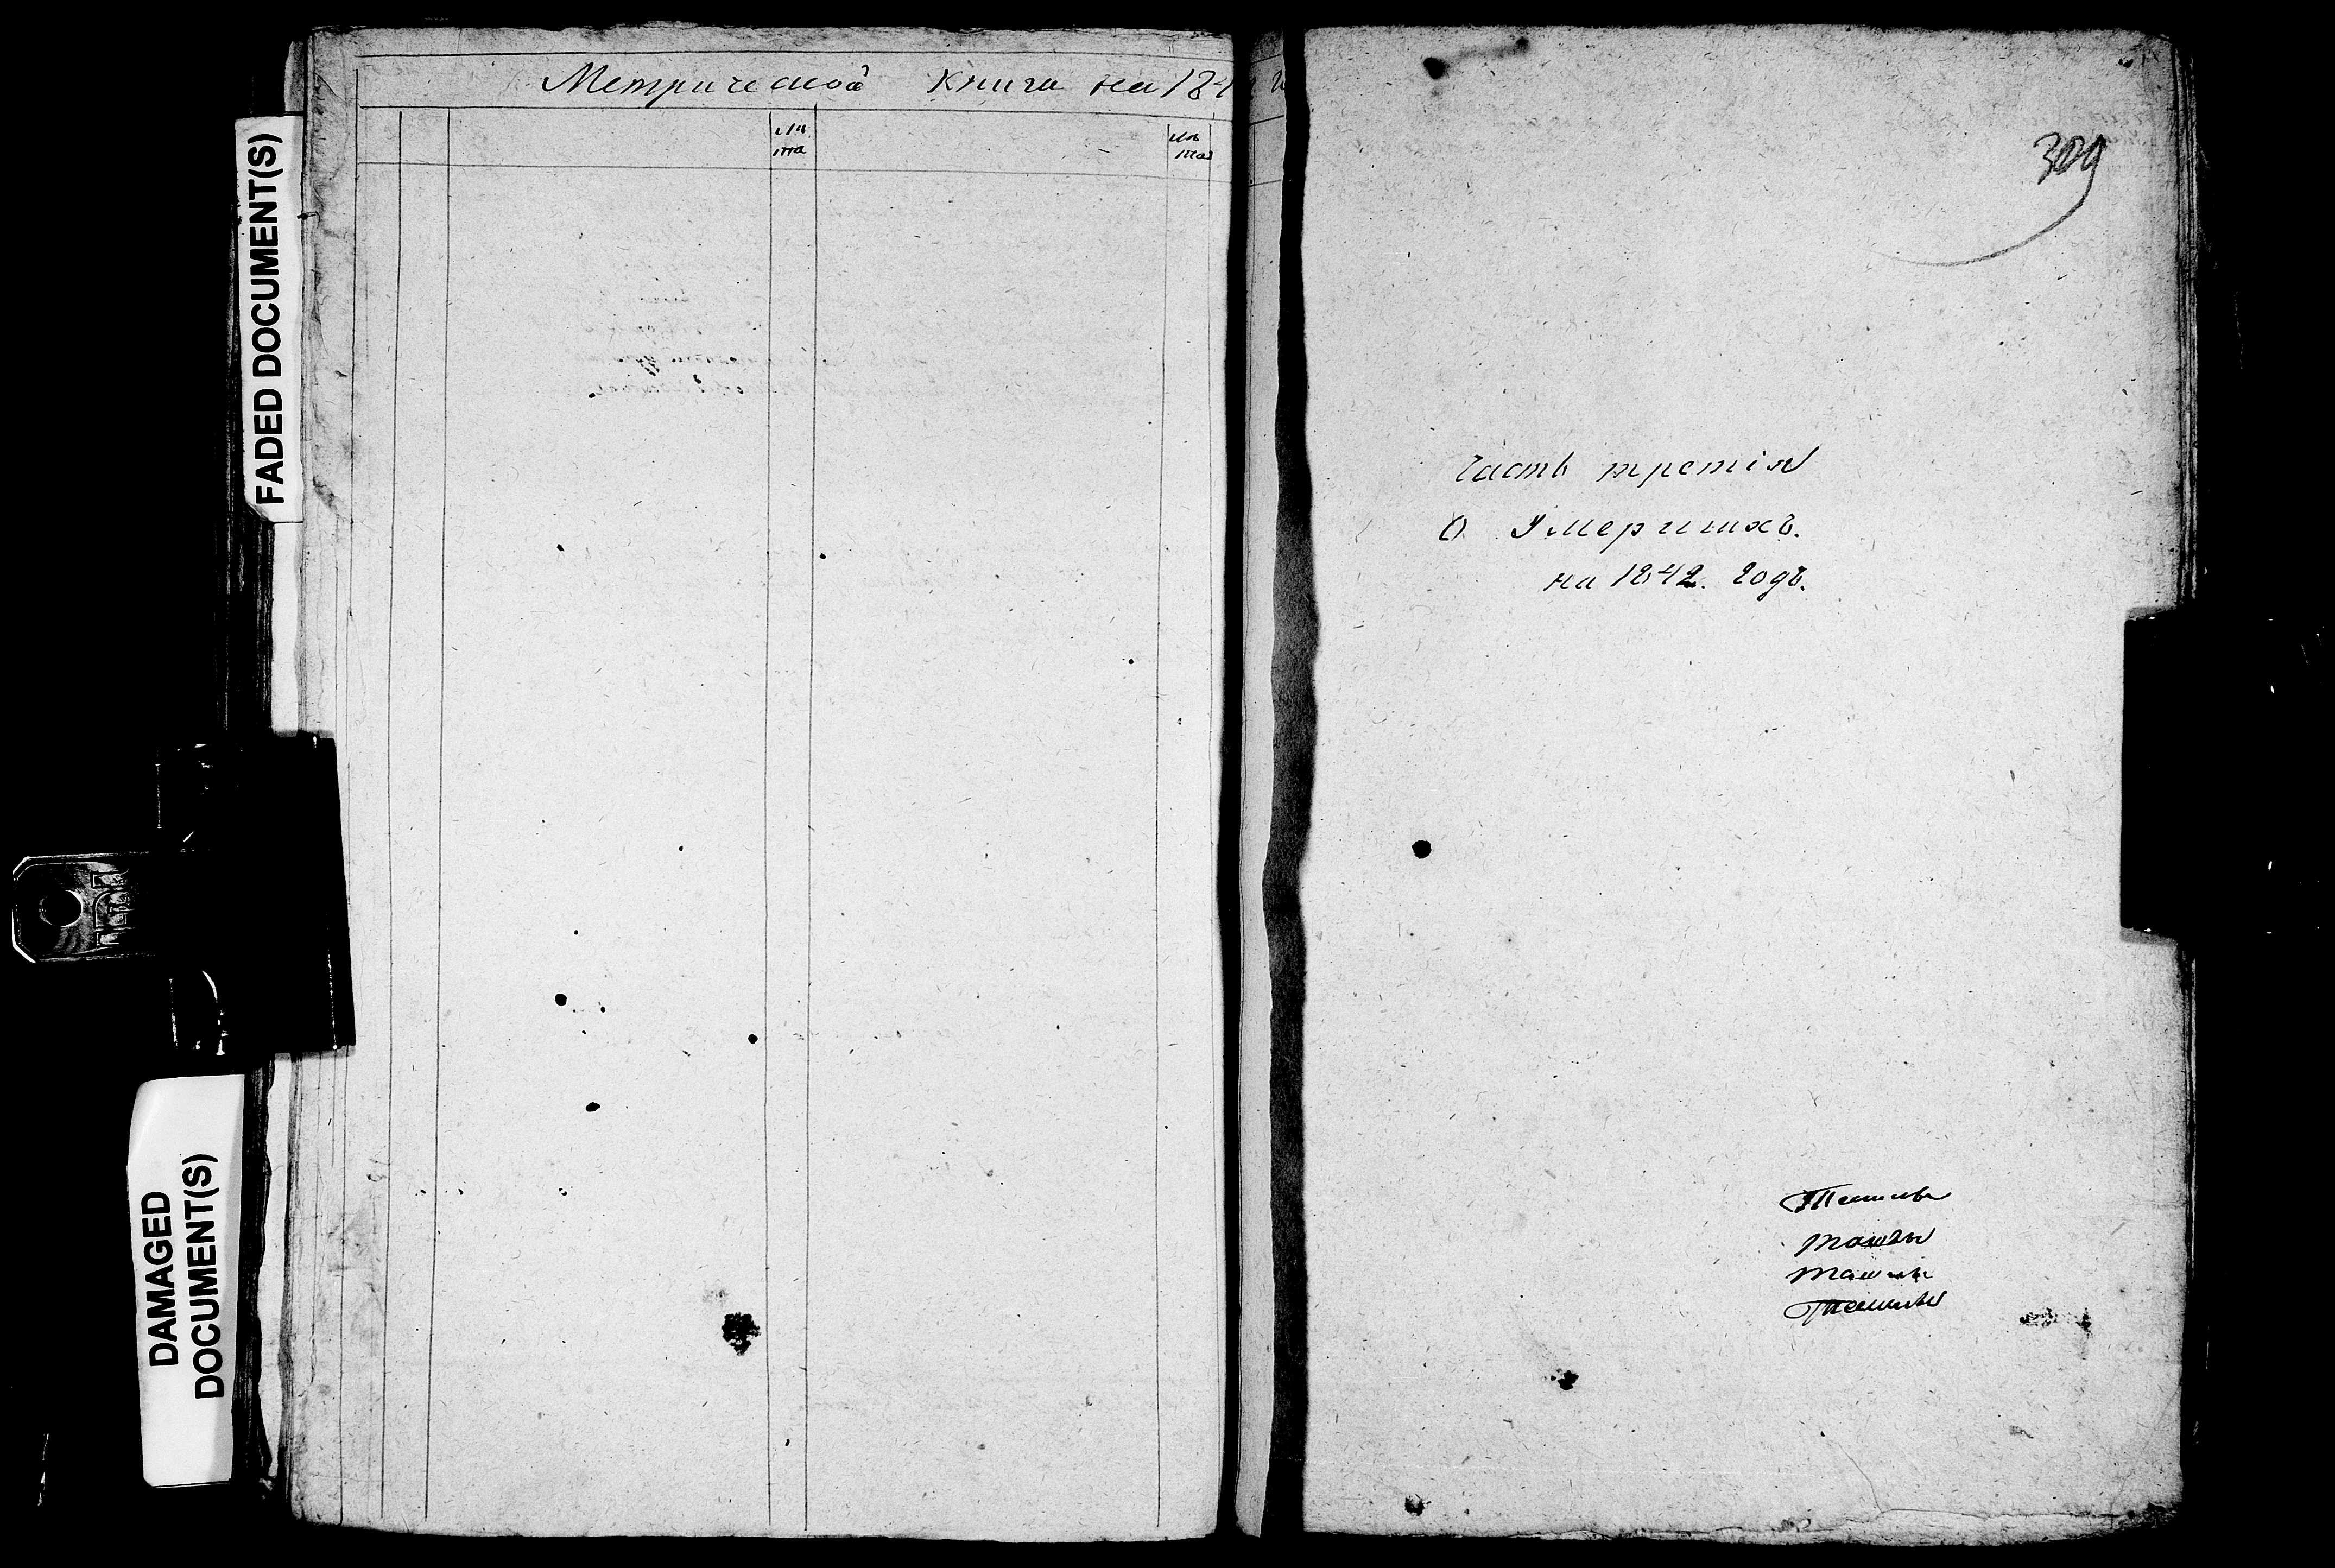 FADED DOCUMENT(S)
DAMAGED
DOCUMENT(S)
Метрической книги на 184
лѣ
та
лѣ
та
309
Часть третія
О Умершихъ.
на 1842. годъ.